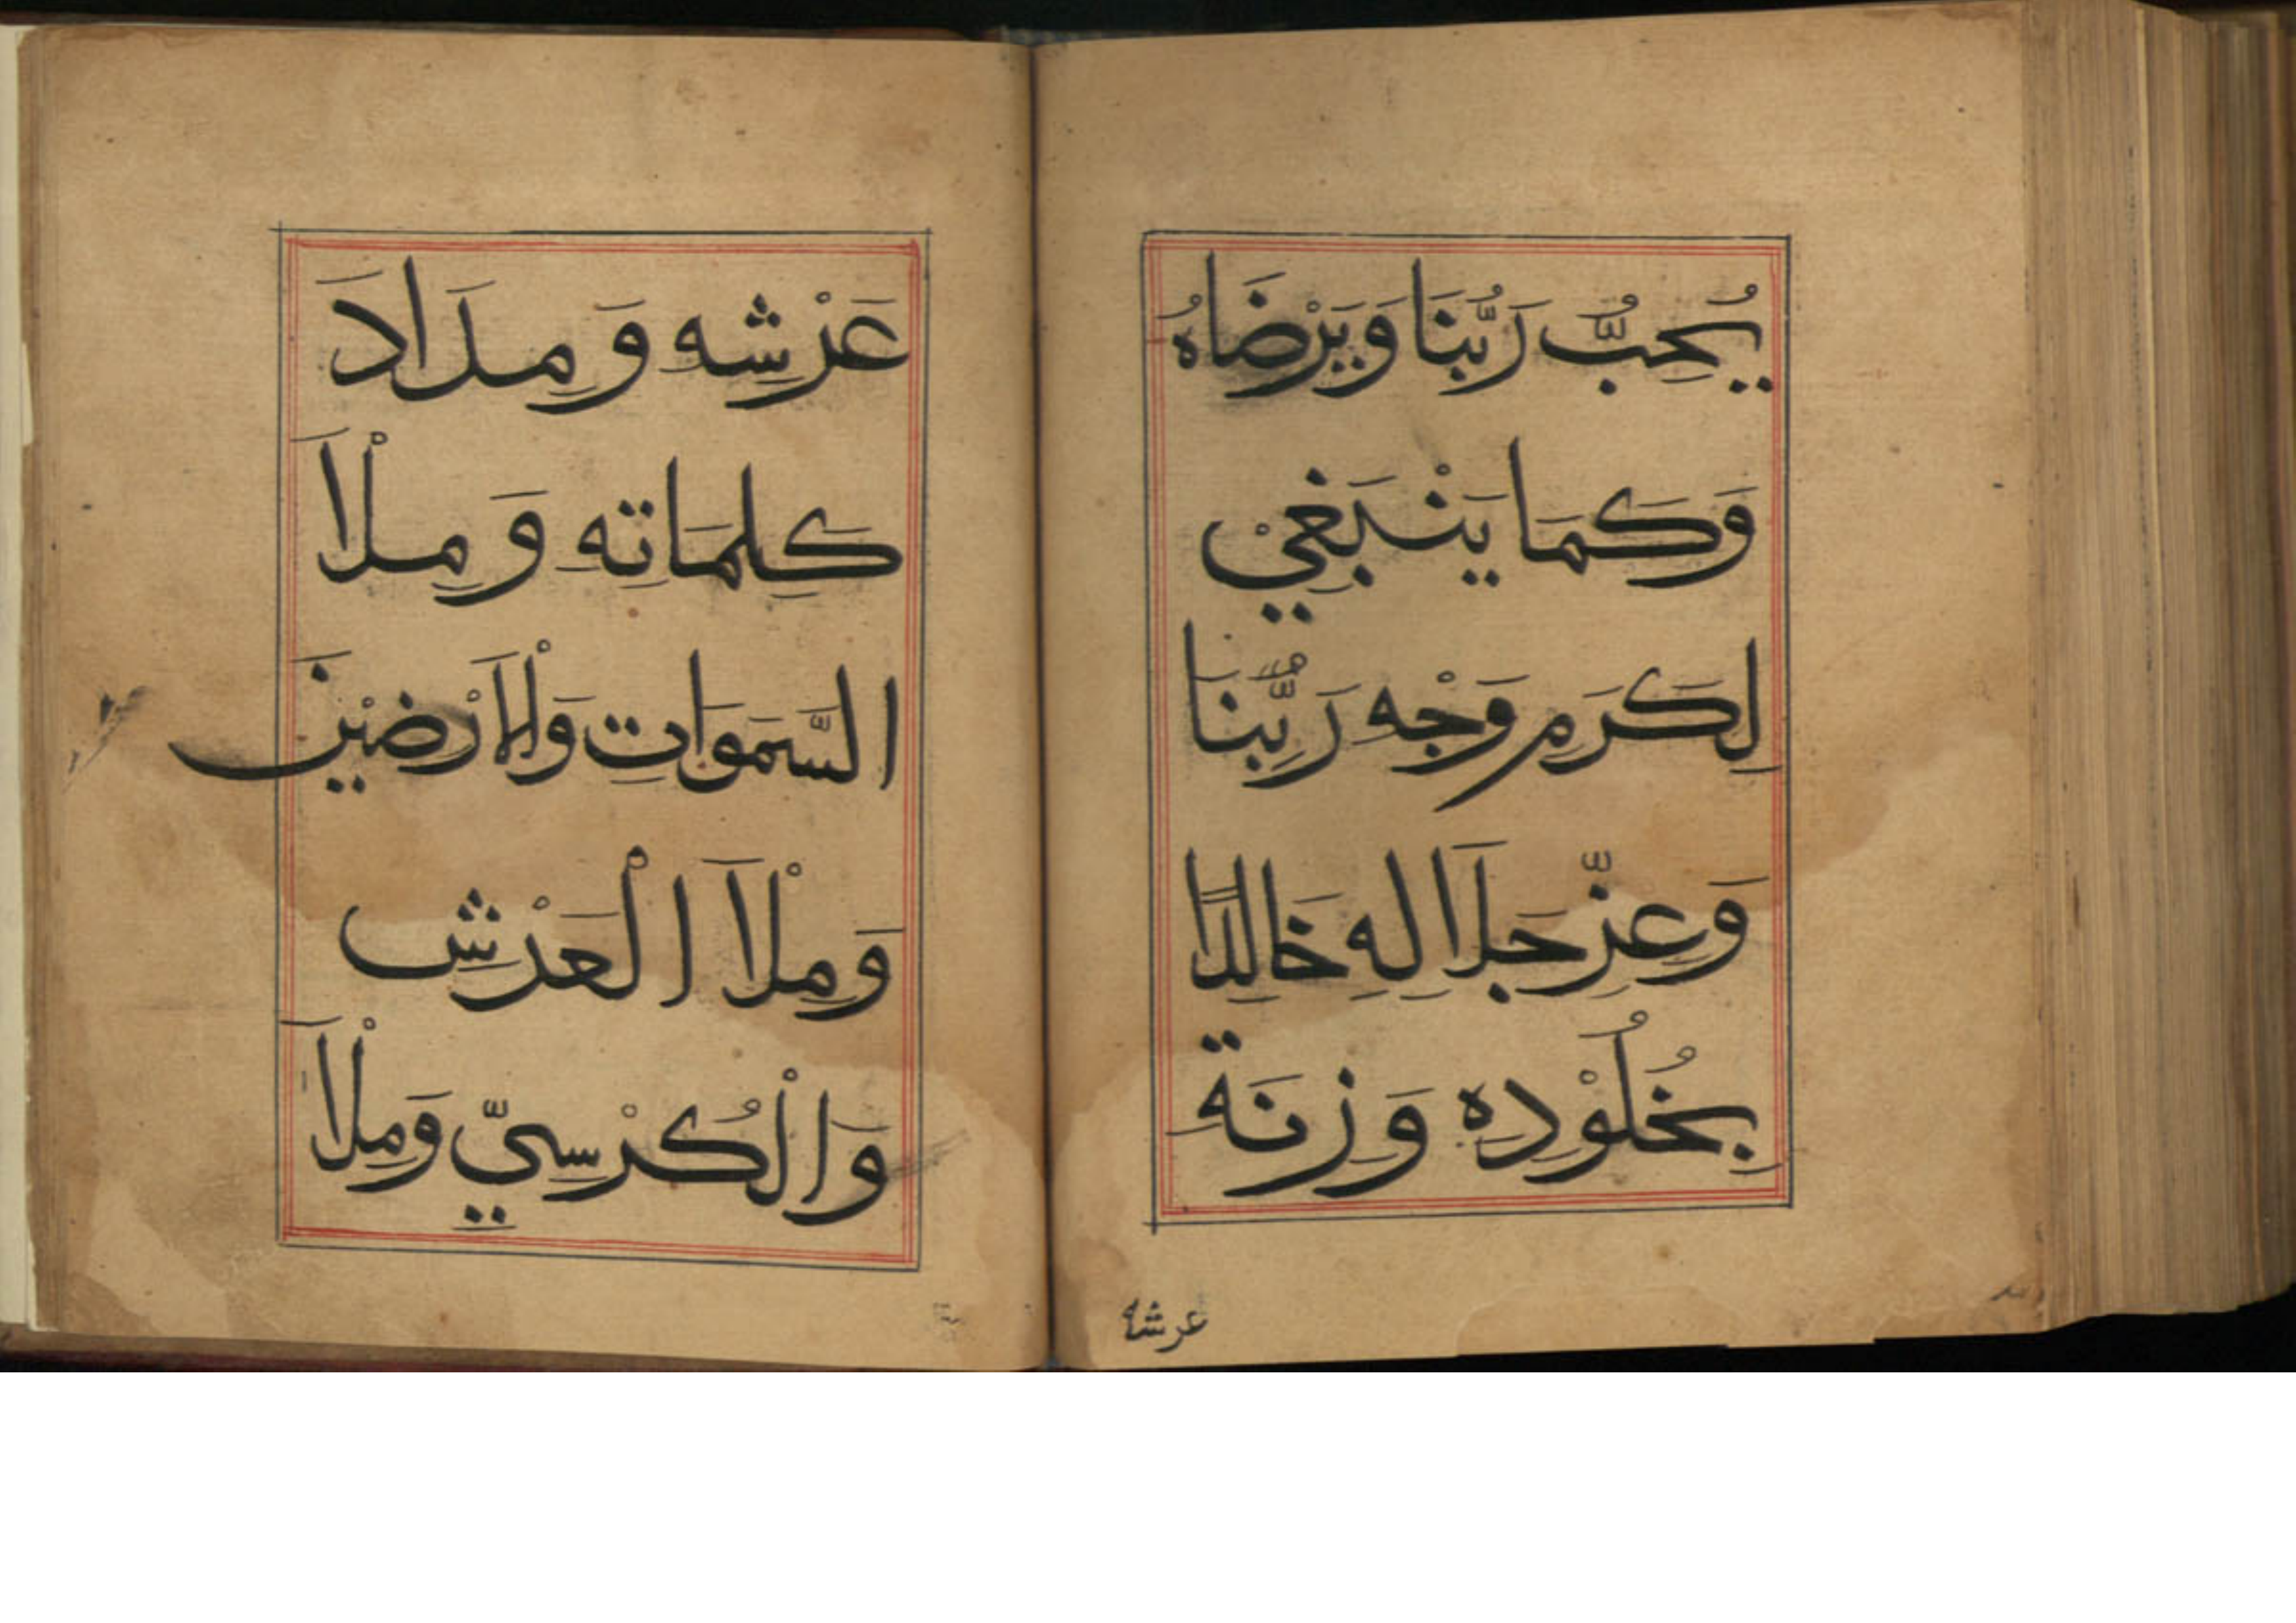 يُحِبُّ رَبُّنَا وَيَرْضَاهُ
وَكَمَا يَنْبَغِيْ
لِكَرَمِ وَجْهِ رَبِّنَا
وَعِزِّ جَلَالِهِ خَالِدًا
بِخُلُوْدِهِ وَزِنَةَ
عرشه
عَرْشِهِ وَمِدَادَ
كَلِمَاتِهِ وَمِلْاَ
السَّمَوَاتِ وَالْاَرْضِيْنَ
وَمِلْاَ الْعَرْشِ
وَالْكُرْسِيِّ وَمِلْاَ